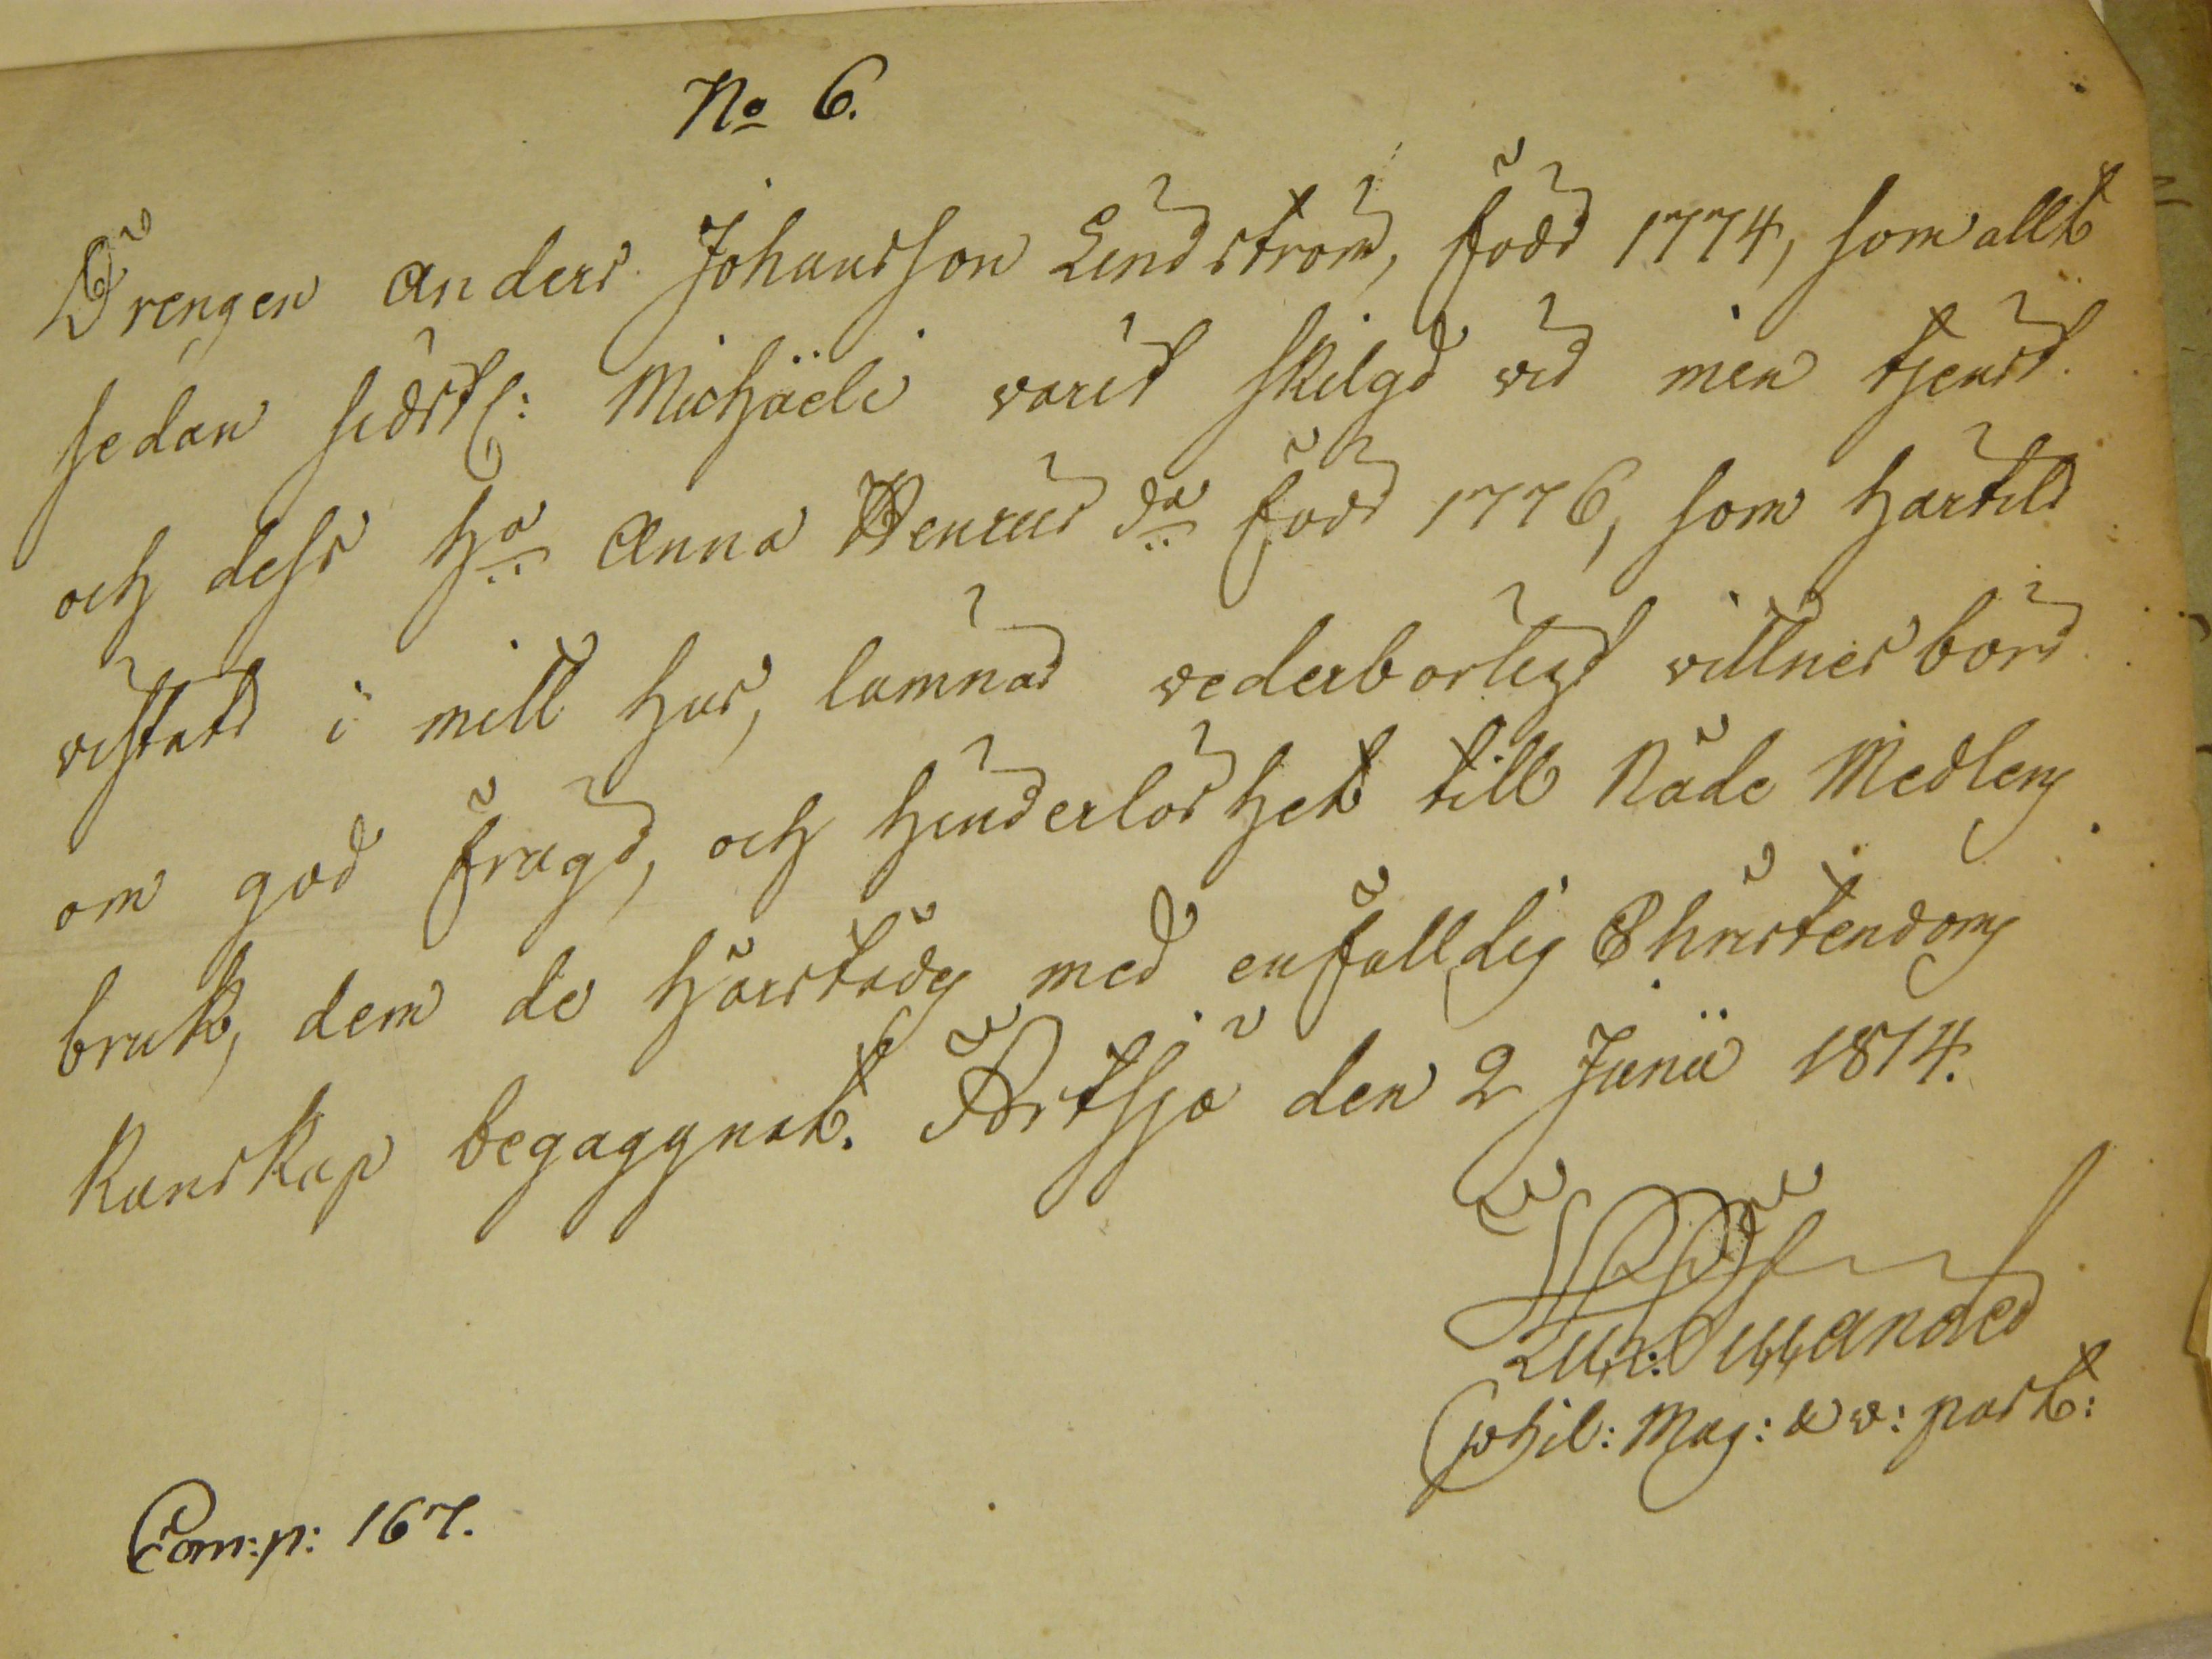 No 6.
Drengen Anders Johansson Lindström, född 1774, som allt
sedan sidstl: Michäeli varit skilgd vid min tjenst
och dess ha Anna Henricsda född 1776, som härtils
vistats i mitt hus, lämnas vederbörligt vittnesbörd
om god frägd, och hinderlöshet till Nåde Medlens
bruk, dem de härstädes med enfalldig Christendoms
kunskap begaggnat. Artsjö den 2 Junii 1814.
phil: Mag: & v: past:
Com:p: 167.